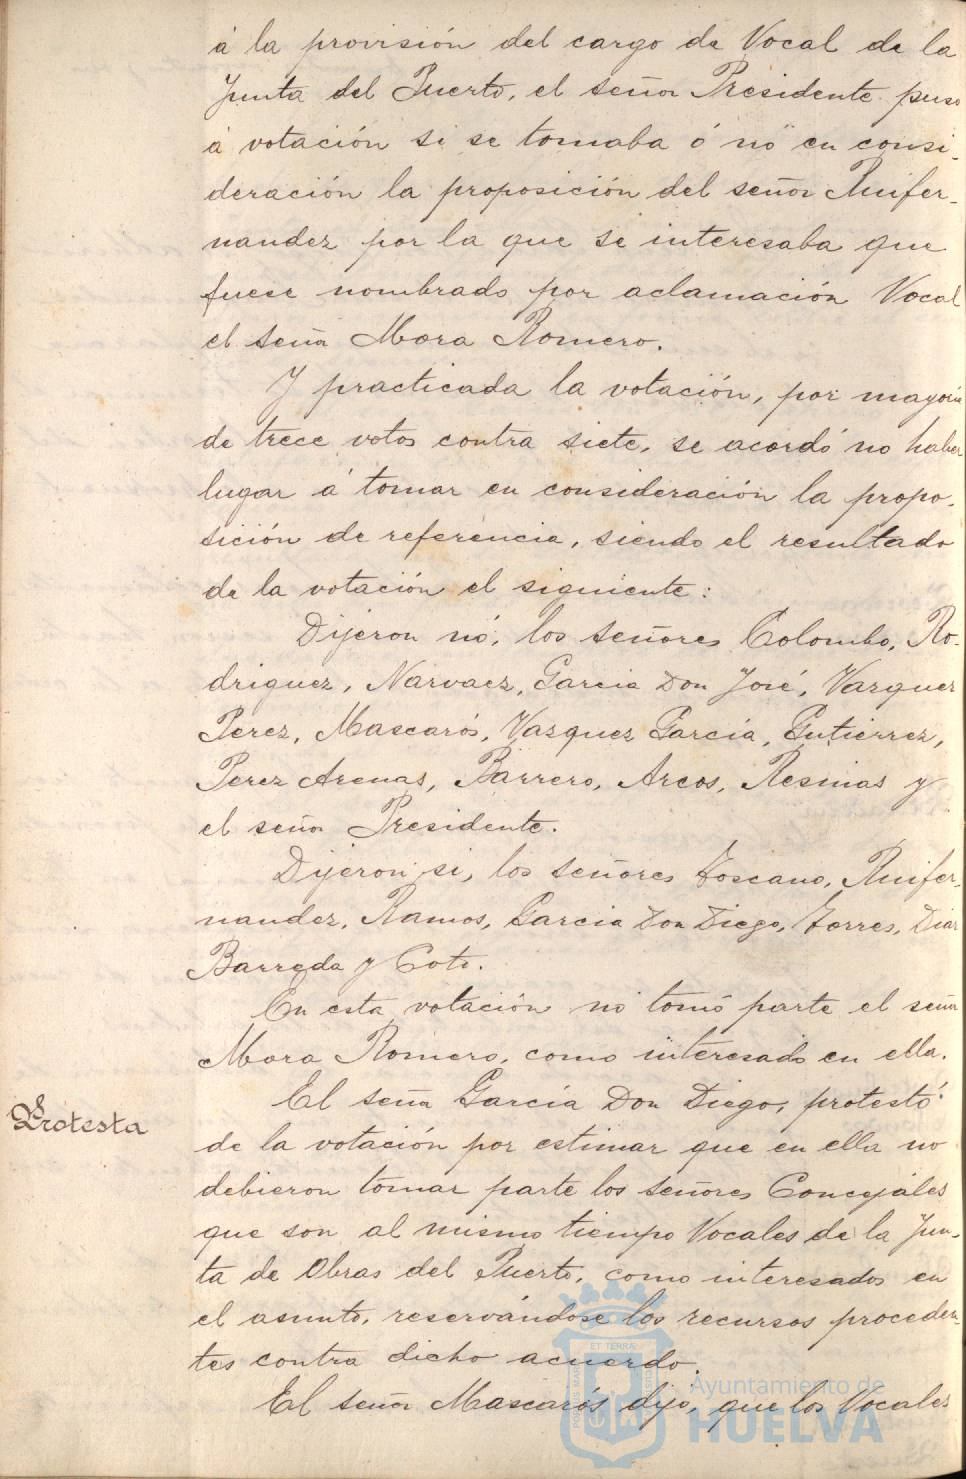 á la provisión del cargo de Vocal de la
Junta del Puerto, el señor Presidente puso
á votación si se tomaba ó nó en consi-
deración la proposición del señor Ruifer-
nandez por la que se interesaba que
fuese nombrado por aclamación Vocal
el señor Mora Romero.
Y practicada la votación, por mayoria
de trece votos contra siete, se acordó no haber
lugar á tomar en consideración la propo-
sición de referencia, siendo el resultado
de la votación el siguiente:
Dijeron nó, los señores Colombo, Ro-
driguez, Narvaez, Garcia Don José, Vazquez
Perez, Mascarós, Vazquez García, Gutierrez,
Perez Arenas, Barrero, Arcos, Resinas y
el señor Presidente.
Dijeron si, los señores Toscano, Ruifer-
nandez, Ramos, Garcia Don Diego, Torres, Diaz
Barreda y Coto.
En esta votación no tomó parte el señor
Mora Romero, como interesado en ella.
Protesta
El señor García Don Diego, protestó
de la votación por estimar que en ella no
debieron tomar parte los señores Concejales
que son al mismo tiempo Vocales de la Jun-
ta de Obras del Puerto, como interesados en
el asunto, reservándose los recursos proceden-
tes contra dicho acuerdo.
El señor Mascarós dijo, que los Vocales
ET TERRÆ
Ayuntamiento de
HUELVA